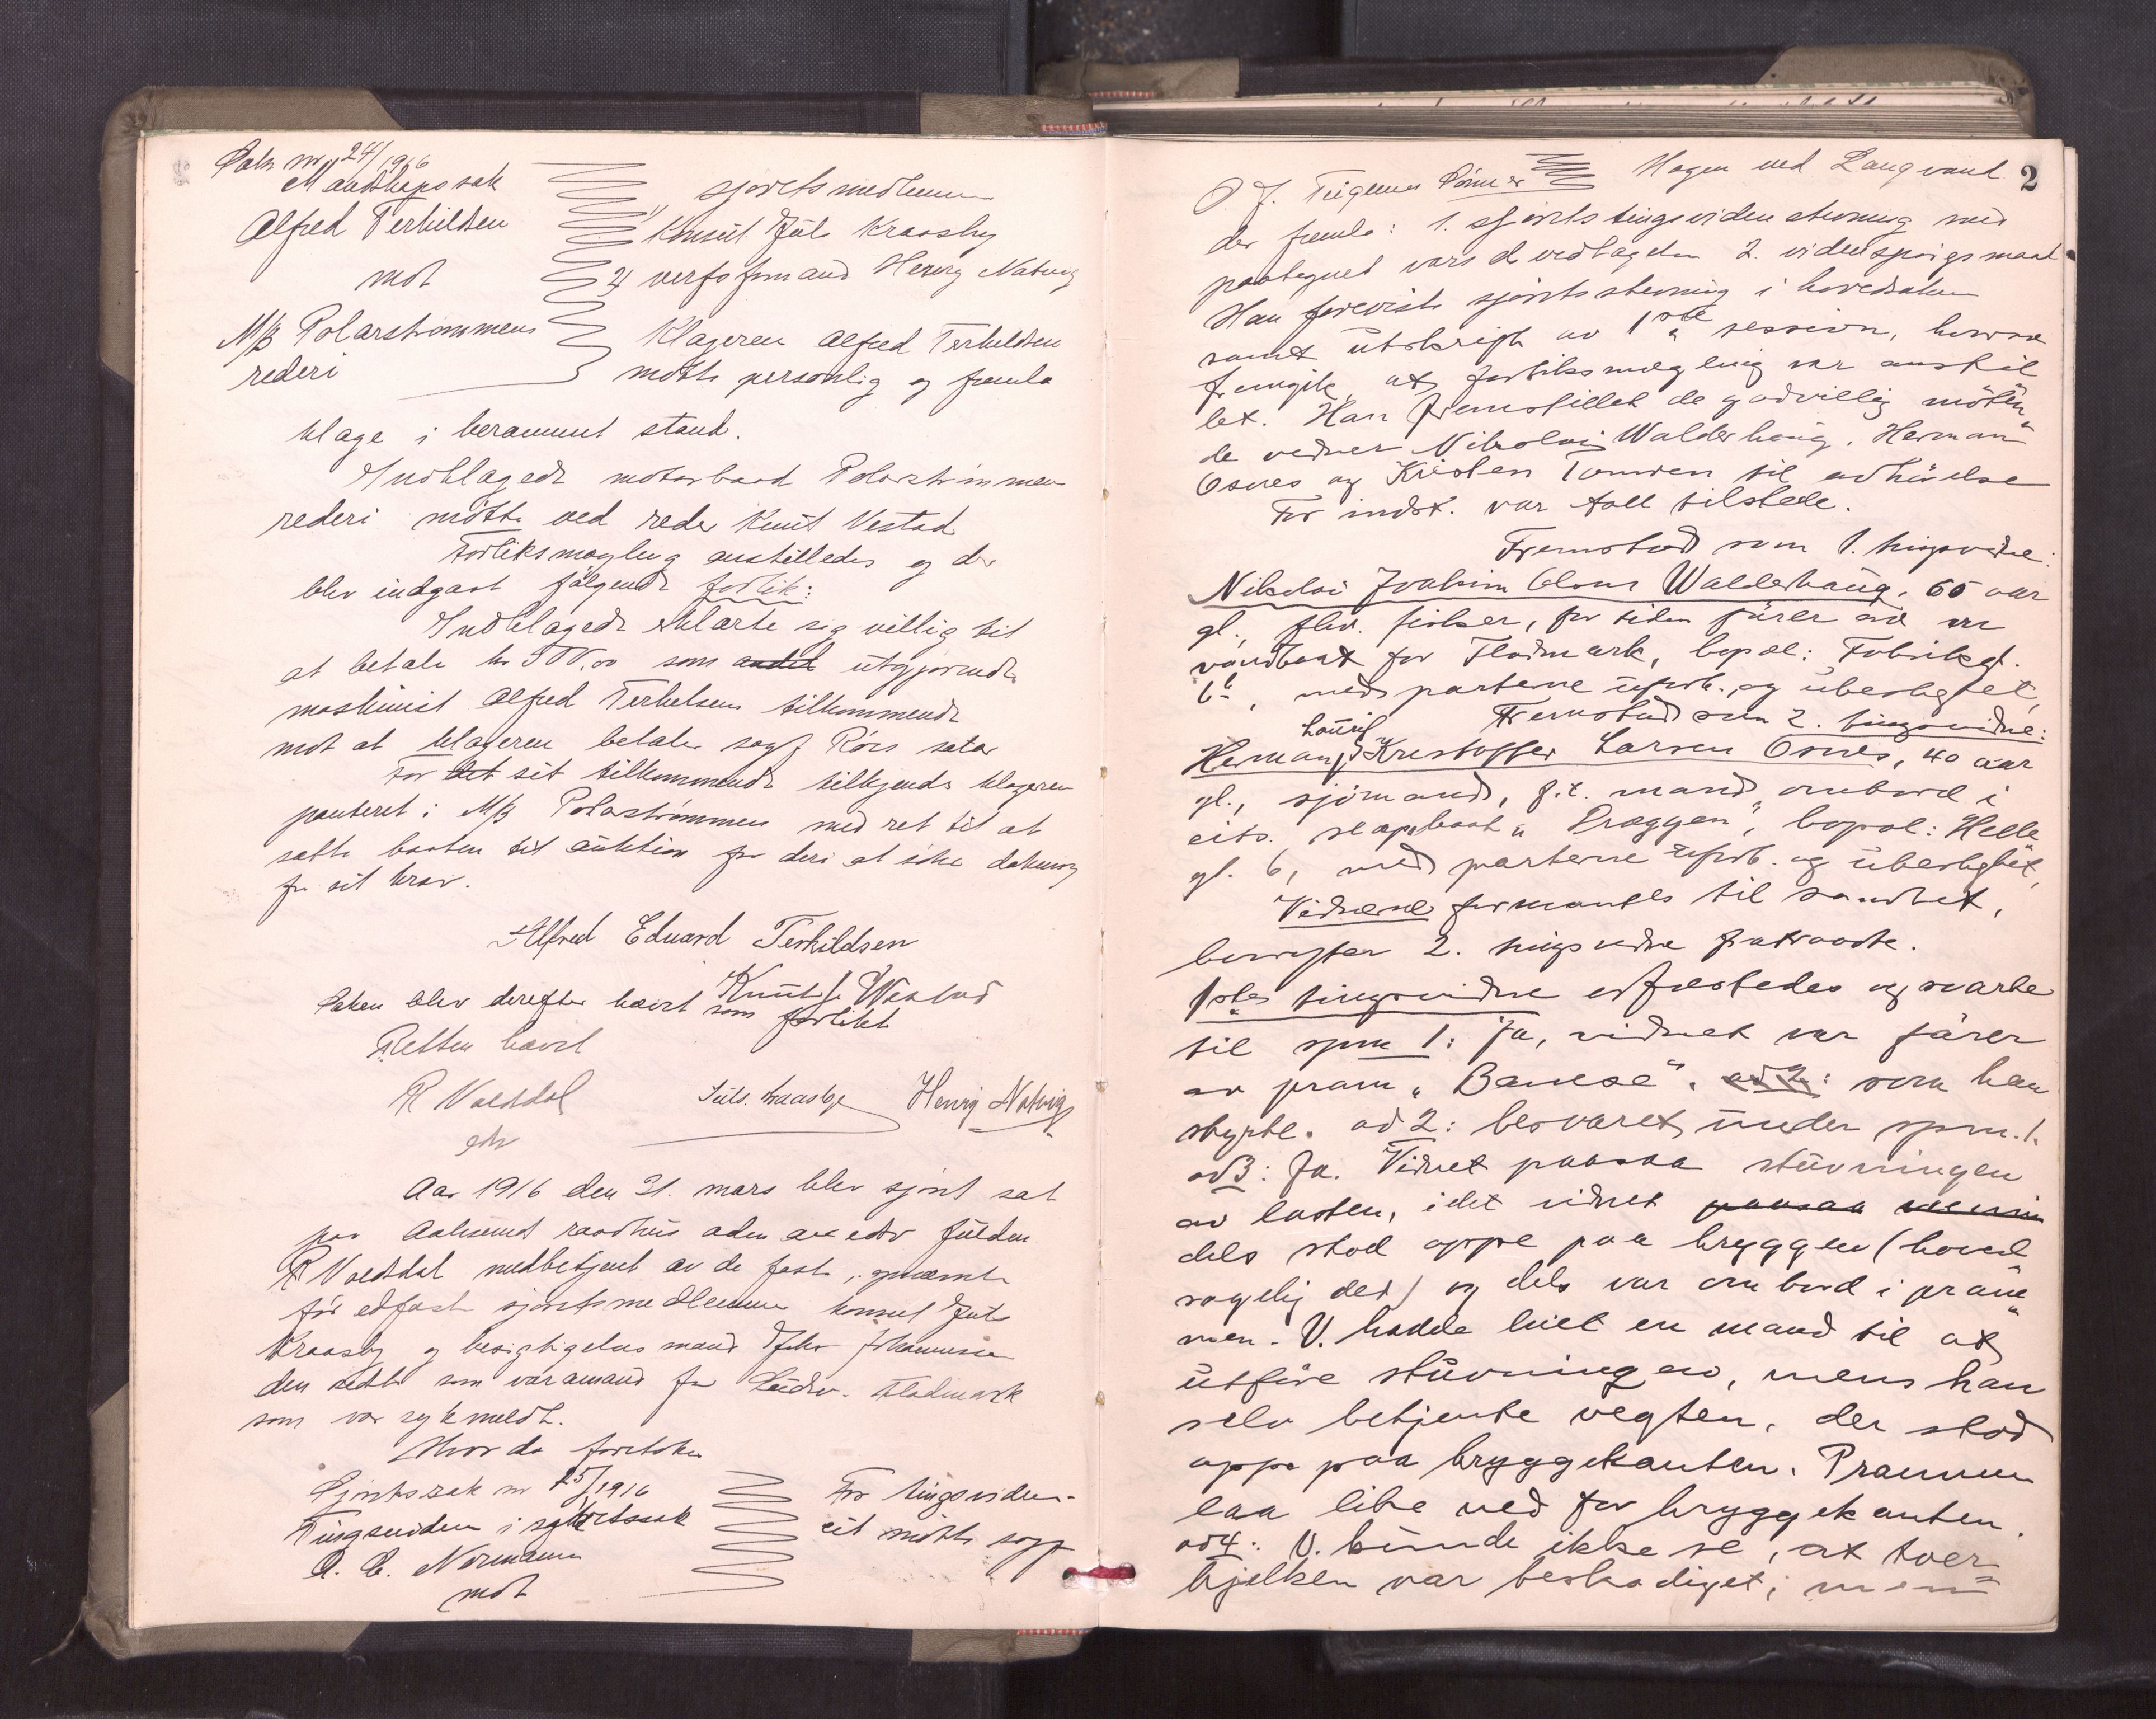 Sak nr 24/1916
Mandskapssak
Alfred Terkildsen
mot
M/B Polarstrømmens
rederi
sjøretsmedlemmer
konsul Juls Kraasby
verfsformand Henry Natvig
Klageren Alfred Terkildsen
møtte personlig og fremla
klage i berammet stand.
Indklagede motorbaad Polarstrømmens
rederi møtte ved reder Knut Vestad
Forliksmægling anstilledes og der
blev indgaat følgende forlik:
Indklagede erklærte sig villig til
at betale kr som andel utgjørende
maskinist Alfred Terkelsens tilkommende
mot at klageren betaler sagf Rørs salær
For det sit tilkommende tilkjendes klageren
panteret i M/B Polarstrømmen med ret til at
sætte baaten til auktion for deri at søke dækning
for sit krav.
Alfred Eduard Terkildsen
Knut J. Westad
Saken blev derefter hævet som forlikt
Retten hævet
R Voldsdal
Juls. Kraasby Henry Natvig
Aar 1916 den 31. mars blev sjøret sat
paa Aalesund raadhus
R Voldsdal medbetjent av de fast opnævnte
før edfæst sjøretsmedlemmer konsul Juls
Kraasby og besigtigelsesmand Johannessen
den sidste som varamand for Ludv. Fladmark
som var sykmeldt.
Hvor da foretokes
Sjøretssak nr 25/1916
Tingsvidne i sjøretssak
O. C. Normann
mot
For tingsviden-
cit møtte sagf
2
O J. Teigenes Sønner Hagen ved Langvand
der fremla: 1. sjøretstingsvidnestevning med
paategnet varsel vedtagelse 2. vidnespørgsmaal
Han foreviste sjøretsstevning i hovedsaken
samt utskrift av 1ste session, hvorav
fremgik, at forliksmægling var anstil
let. Han fremstillet de godvillig møten"
de vidner Nikolai Walderhaug, Herman
Osnes og Kristen Tomren til avhørelse
For indst. var Aall tilstede.
Fremstod som 1. tingsvidne:
Nikolai Joakim Olsen Walderhaug, 65 aar
gl., fhv. fisker, for tiden fører av en
vandbaat for Fladmark, bopæl: Fabrikgt.
6b, med parterne ubesl. og ubeslegtet,
Fremstod som 2. tingsvidne:
Laurits
Herman Kristoffer Larsen Osnes, 40 aar
gl., sjømand, f.t. mand ombord i
eits. slæpebaat "Draggen", bopæl: Helle
gt. 6, med parterne ubesl. og ubeslegtet,
Vidnerne formantes til sandhet,
hvorefter 2. tingsvidne fratraadte.
1stes tingsvidne edfæstedes og svarte
til spm 1: Ja, vidnet var fører
av pram "Bamse". ad 2: som han
styrte. ad 2: besvaret under spm. 1.
ad 3: Ja. Vidnet paasaa stuvningen
av lasten, idet vidnet paasaa
dels stod oppe paa bryggen (hoved
sagelig det) og dels var ombord i pram"
men. V. hadde leiet en mand til at
utføre stuvningen, mens han
selv betjente vegten, der stod
oppe paa bryggekanten. Prammen
laa like ved for bryggekanten.
ad 4: V. kunde ikke se, at tver=
bjelken var beskadiget; men=